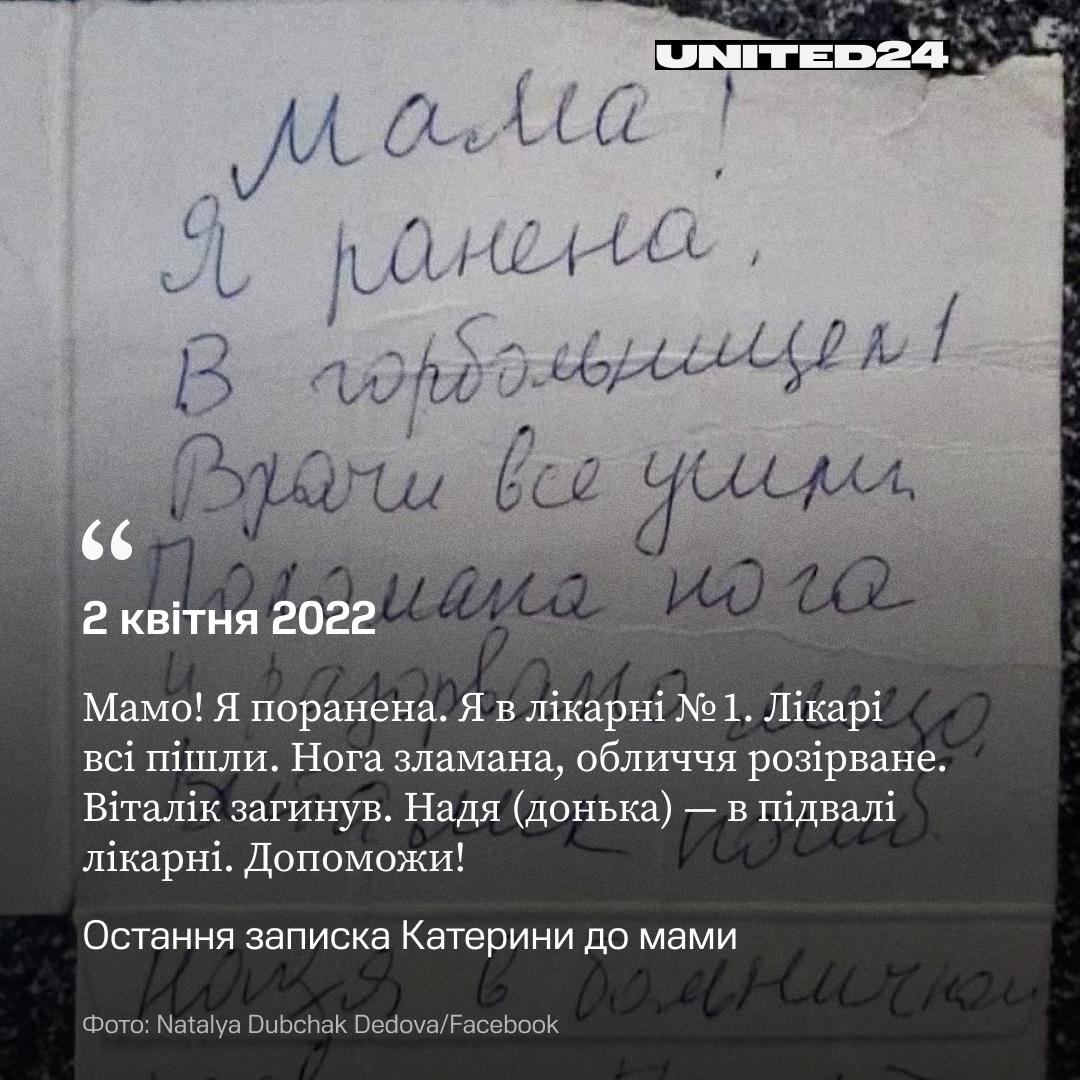 UNITED24
Мама!
Я ранена.
В горбольнице №1
Врачи все ушли
Поломана нога
и разорвано лицо.
Виталик погиб.
Надя в больничном
“
2 квітня 2022
Мамо! Я поранена. Я в лікарні № 1. Лікарі
всі пішли. Нога зламана, обличчя розірване.
Віталік загинув. Надя (донька) — в підвалі
лікарні. Допоможи!
Остання записка Катерини до мами
Фото: Natalya Dubchak Dedova/Facebook